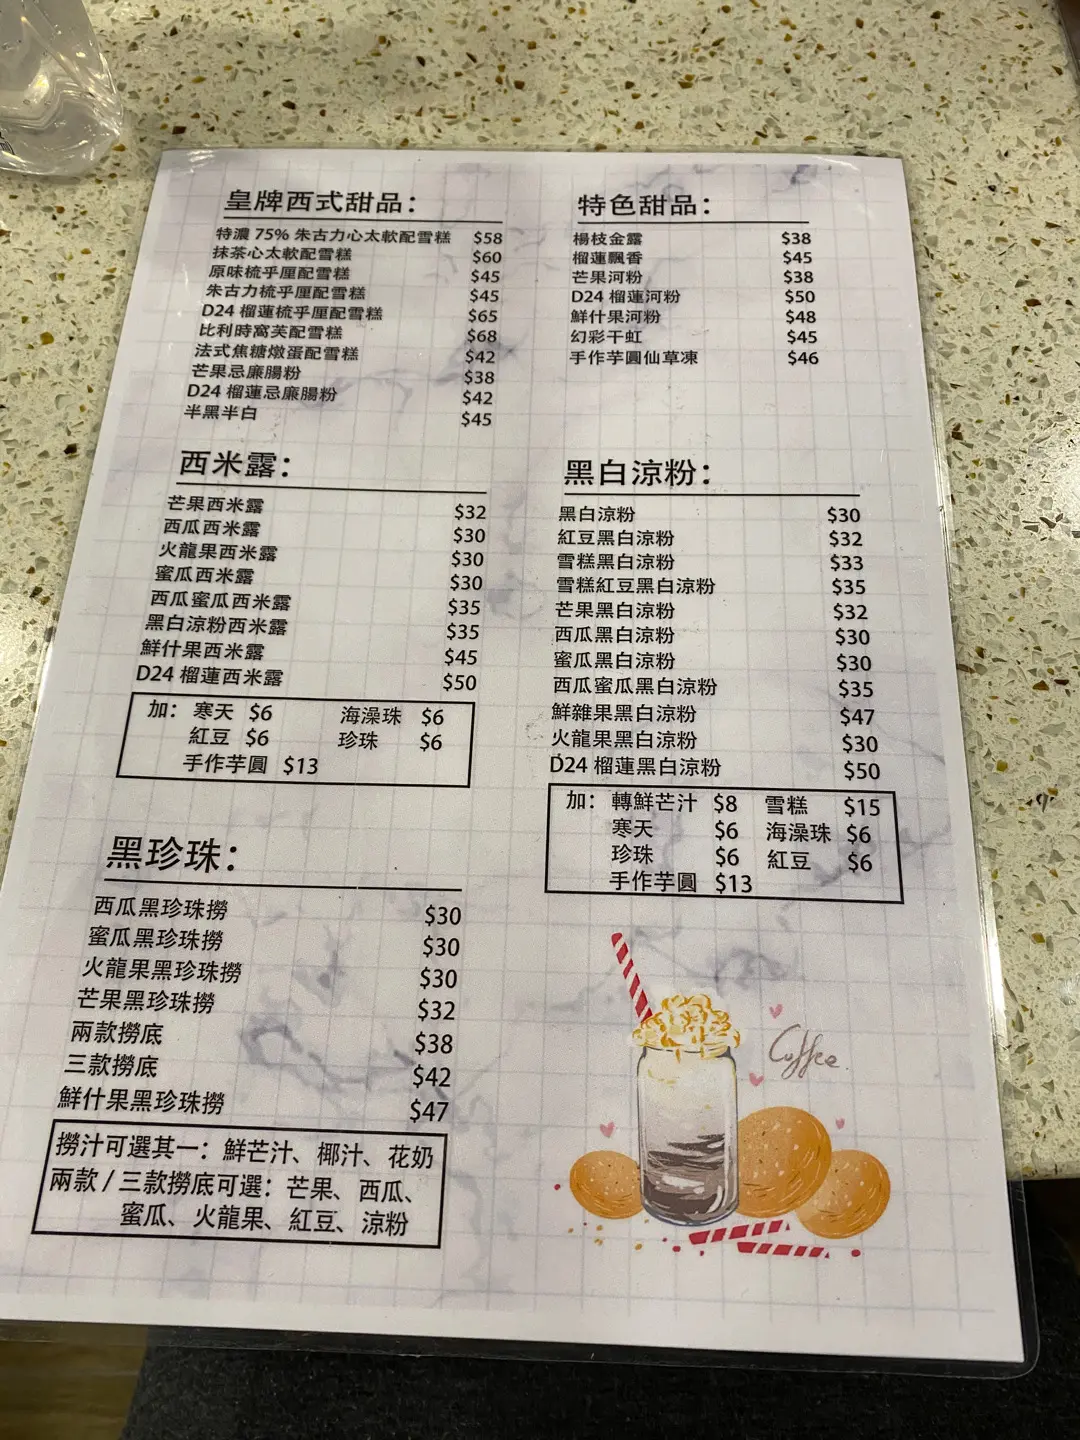 皇牌西式甜品：
特濃 75% 朱古力心太軟配雪糕 $58
抹茶心太軟配雪糕 $60
原味梳乎厘配雪糕 $45
朱古力梳乎厘配雪糕 $45
D24 榴蓮梳乎厘配雪糕 $65
比利時窩芙配雪糕 $68
法式焦糖燉蛋配雪糕 $42
芒果忌廉腸粉 $38
D24 榴蓮忌廉腸粉 $42
半黑半白 $45
特色甜品：
楊枝金露 $38
榴蓮飄香 $45
芒果河粉 $38
D24 榴蓮河粉 $50
鮮什果河粉 $48
幻彩干虹 $45
手作芋圓仙草凍 $46
西米露：
芒果西米露 $32
西瓜西米露 $30
火龍果西米露 $30
蜜瓜西米露 $30
西瓜蜜瓜西米露 $35
黑白涼粉西米露 $35
鮮什果西米露 $45
D24 榴蓮西米露 $50
加： 寒天 $6 海澡珠 $6
紅豆 $6 珍珠 $6
手作芋圓 $13
黑白涼粉：
黑白涼粉 $30
紅豆黑白涼粉 $32
雪糕黑白涼粉 $33
雪糕紅豆黑白涼粉 $35
芒果黑白涼粉 $32
西瓜黑白涼粉 $30
蜜瓜黑白涼粉 $30
西瓜蜜瓜黑白涼粉 $35
鮮雜果黑白涼粉 $47
火龍果黑白涼粉 $30
D24 榴蓮黑白涼粉 $50
加： 轉鮮芒汁 $8 雪糕 $15
寒天 $6 海澡珠 $6
珍珠 $6 紅豆 $6
手作芋圓 $13
黑珍珠：
西瓜黑珍珠撈 $30
蜜瓜黑珍珠撈 $30
火龍果黑珍珠撈 $30
芒果黑珍珠撈 $32
兩款撈底 $38
三款撈底 $42
鮮什果黑珍珠撈 $47
撈汁可選其一：鮮芒汁、椰汁、花奶
兩款 / 三款撈底可選：芒果、西瓜、
蜜瓜、火龍果、紅豆、涼粉
Coffee